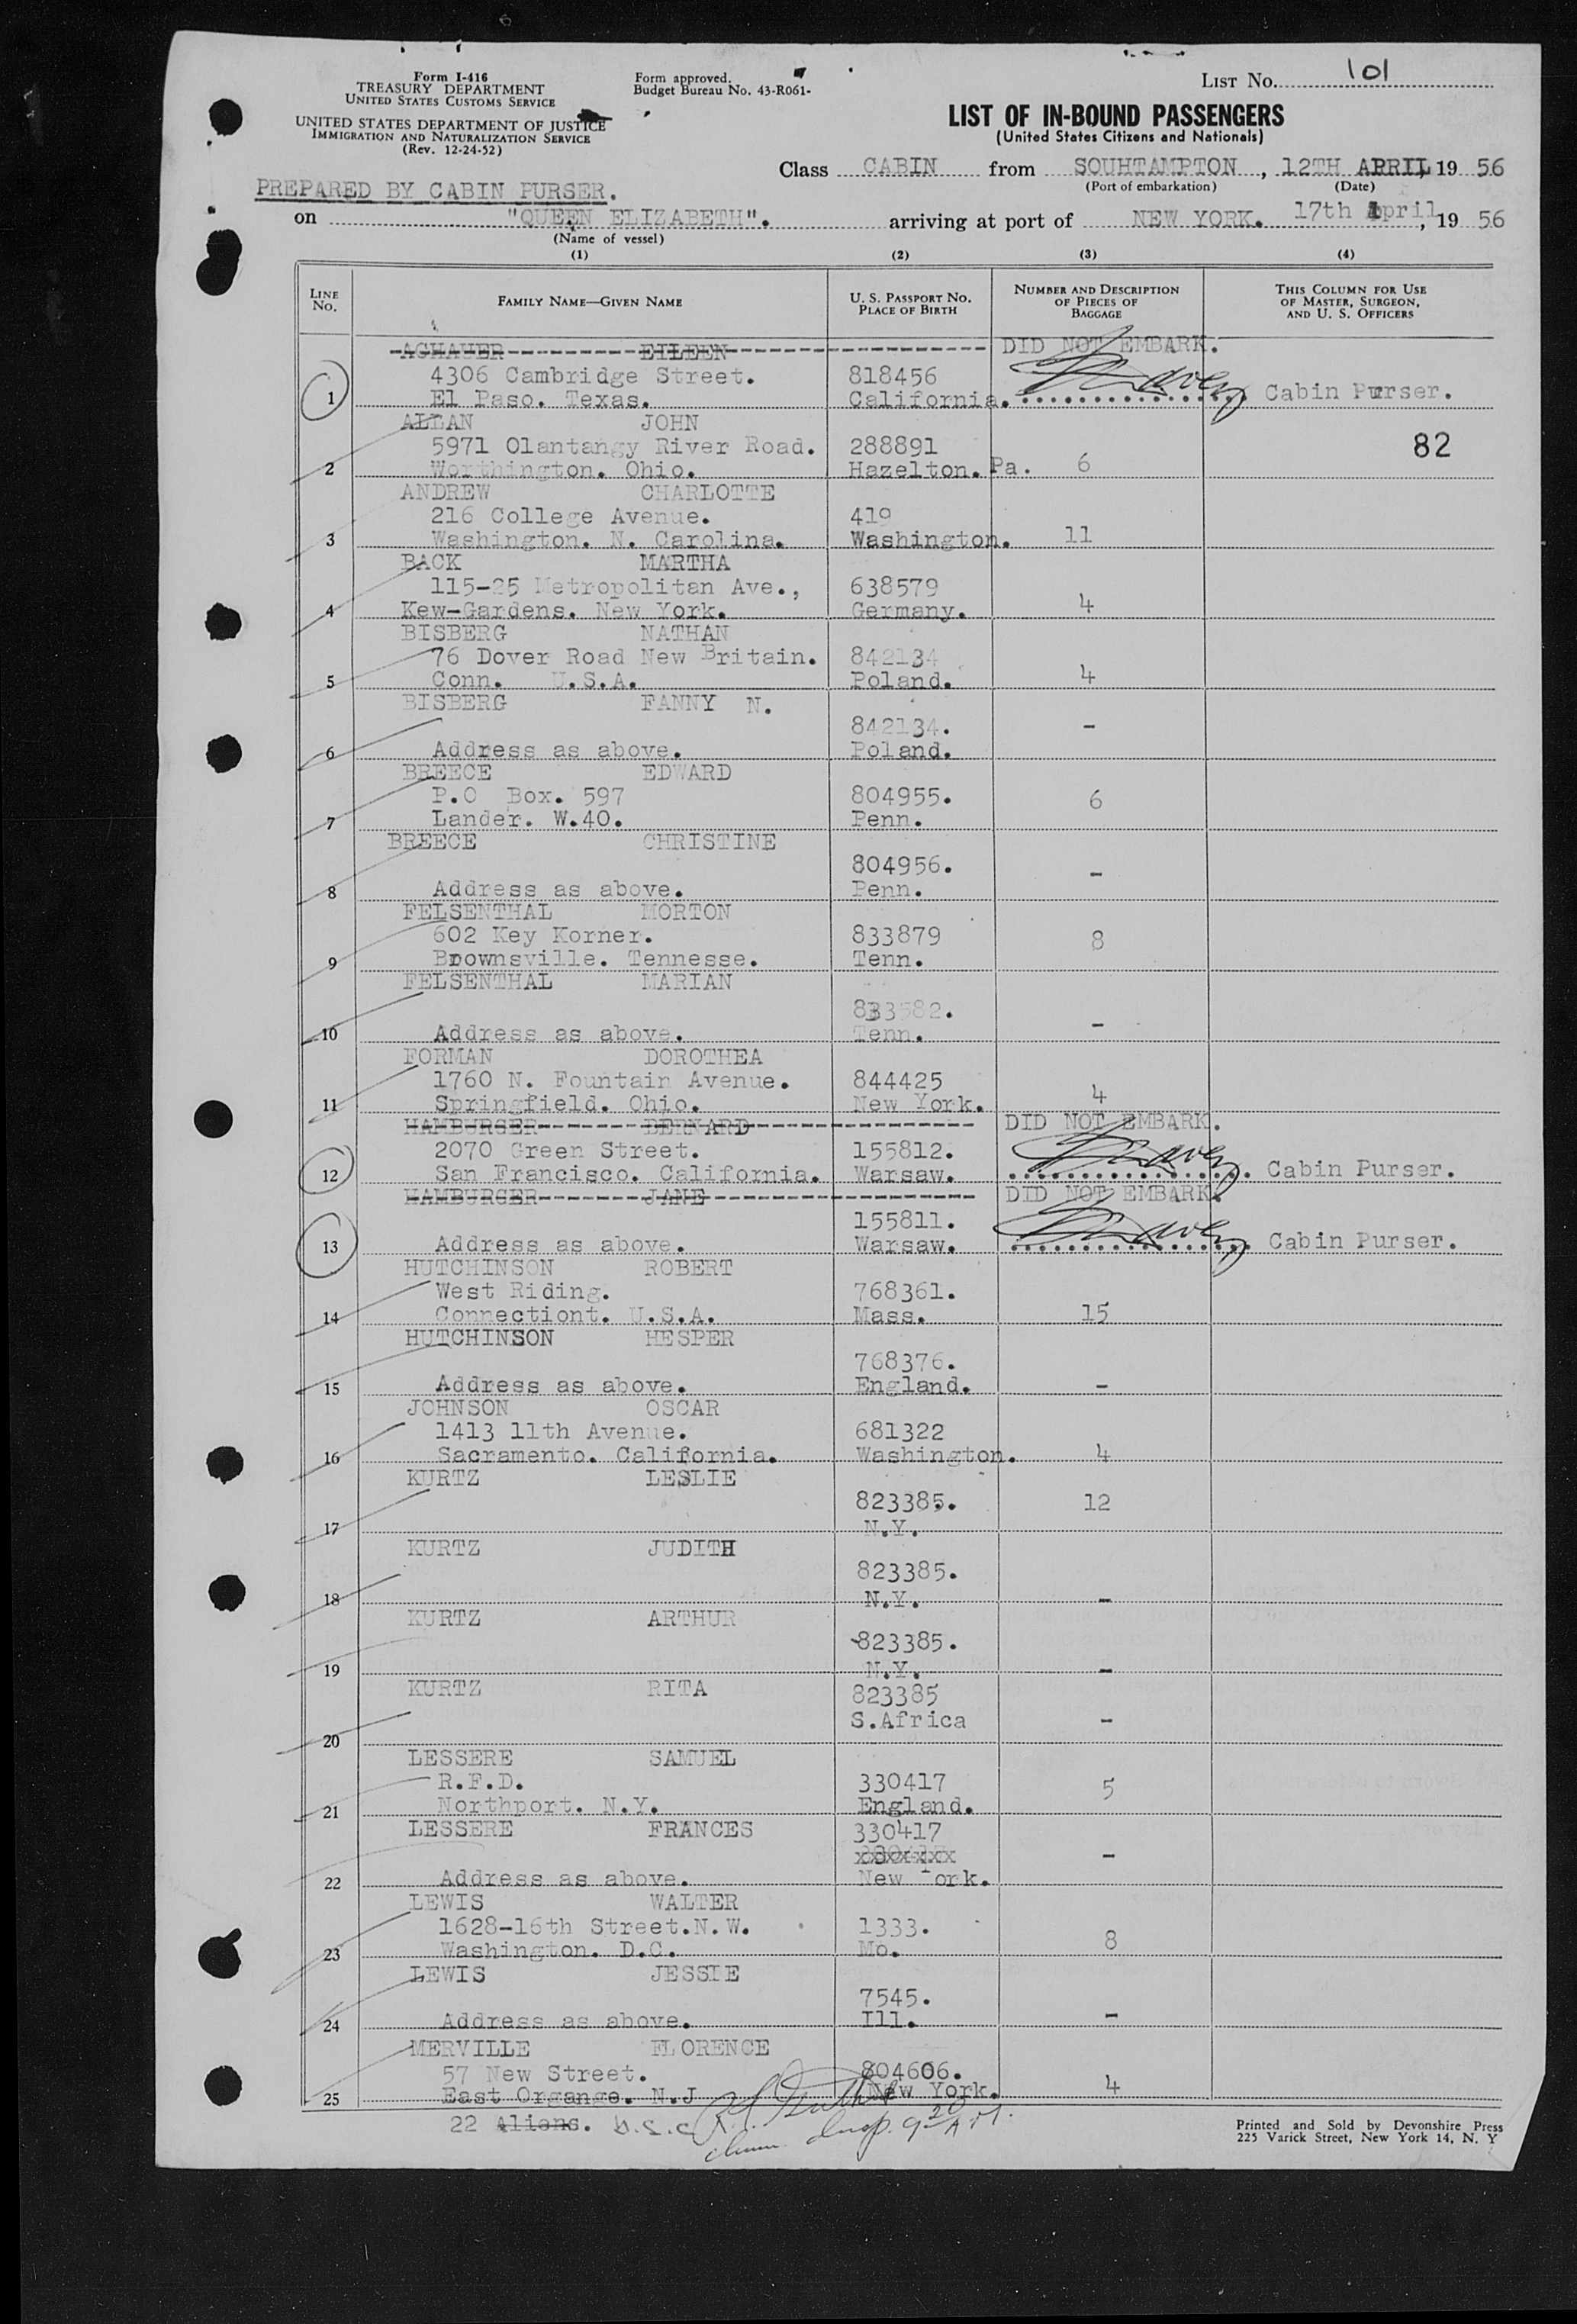 Form I-416
TREASURY DEPARTMENT
UNITED STATES CUSTOMS SERVICE
UNITED STATES DEPARTMENT OF JUSTICE
IMMIGRATION AND NATURALIZATION SERVICE
(Rev. 12-24-52)
Form approved.
Budget Bureau No. 43-R061-
LIST No. 101
LIST OF IN-BOUND PASSENGERS
(United States Citizens and Nationals)
Class CABIN from SOUHTAMPTON, 12TH APRIL, 19 56
(Port of embarkation) (Date)
PREPARED BY CABIN PURSER.
on "QUEEN ELIZABETH". arriving at port of NEW YORK. 17th April, 19 56
(Name of vessel)
(1) (2) (3) (4)
LINE No. FAMILY NAME—GIVEN NAME U. S. PASSPORT NO. PLACE OF BIRTH NUMBER AND DESCRIPTION OF PIECES OF BAGGAGE THIS COLUMN FOR USE OF MASTER, SURGEON, AND U. S. OFFICERS
AGHAUER EILEEN DID NOT EMBARK.
4306 Cambridge Street. 818456
1 El Paso. Texas. California. Cabin Purser.
ALLAN JOHN
5971 Olantangy River Road. 288891 82
2 Worthington. Ohio. Hazelton. Pa. 6
ANDREW CHARLOTTE
216 College Avenue. 419
3 Washington. N. Carolina. Washington. 11
BACK MARTHA
115-25 Metropolitan Ave., 638579
4 Kew-Gardens. New York. Germany. 4
BISBERG NATHAN
76 Dover Road New Britain. 842134
5 Conn. U.S.A. Poland. 4
BISBERG FANNY N.
842134. -
6 Address as above. Poland.
BREECE EDWARD
P.O Box. 597 804955. 6
7 Lander. W.40. Penn.
BREECE CHRISTINE
804956. -
8 Address as above. Penn.
FELSENTHAL MORTON
602 Key Korner. 833879 8
9 Brownsville. Tennesse. Tenn.
FELSENTHAL MARIAN
833582. -
10 Address as above. Tenn.
FORMAN DOROTHEA
1760 N. Fountain Avenue. 844425 4
11 Springfield. Ohio. New York.
HAMBURGER BERNARD DID NOT EMBARK.
2070 Green Street. 155812.
12 San Francisco. California. Warsaw. Cabin Purser.
HAMBURGER JANE DID NOT EMBARK.
155811.
13 Address as above. Warsaw. Cabin Purser.
HUTCHINSON ROBERT
West Riding. 768361.
14 Connectiont. U.S.A. Mass. 15
HUTCHINSON HESPER
768376.
15 Address as above. England. -
JOHNSON OSCAR
1413 11th Avenue. 681322
16 Sacramento. California. Washington. 4
KURTZ LESLIE
823385. 12
17 N.Y.
KURTZ JUDITH
823385.
18 N.Y. -
KURTZ ARTHUR
823385.
19 N.Y. -
KURTZ RITA 823385
S.Africa -
20
LESSERE SAMUEL
R.F.D. 330417 5
21 Northport. N.Y. England.
LESSERE FRANCES 330417
-
22 Address as above. New York.
LEWIS WALTER
1628-16th Street.N.W. 1333. 8
23 Washington. D.C. Mo.
LEWIS JESSIE
7545.
24 Address as above. Ill. -
MERVILLE FLORENCE
57 New Street. 804606.
25 East Organge. N.J New York. 4
22 Aliens. U.S.C
Printed and Sold by Devonshire Press
225 Varick Street, New York 14, N. Y